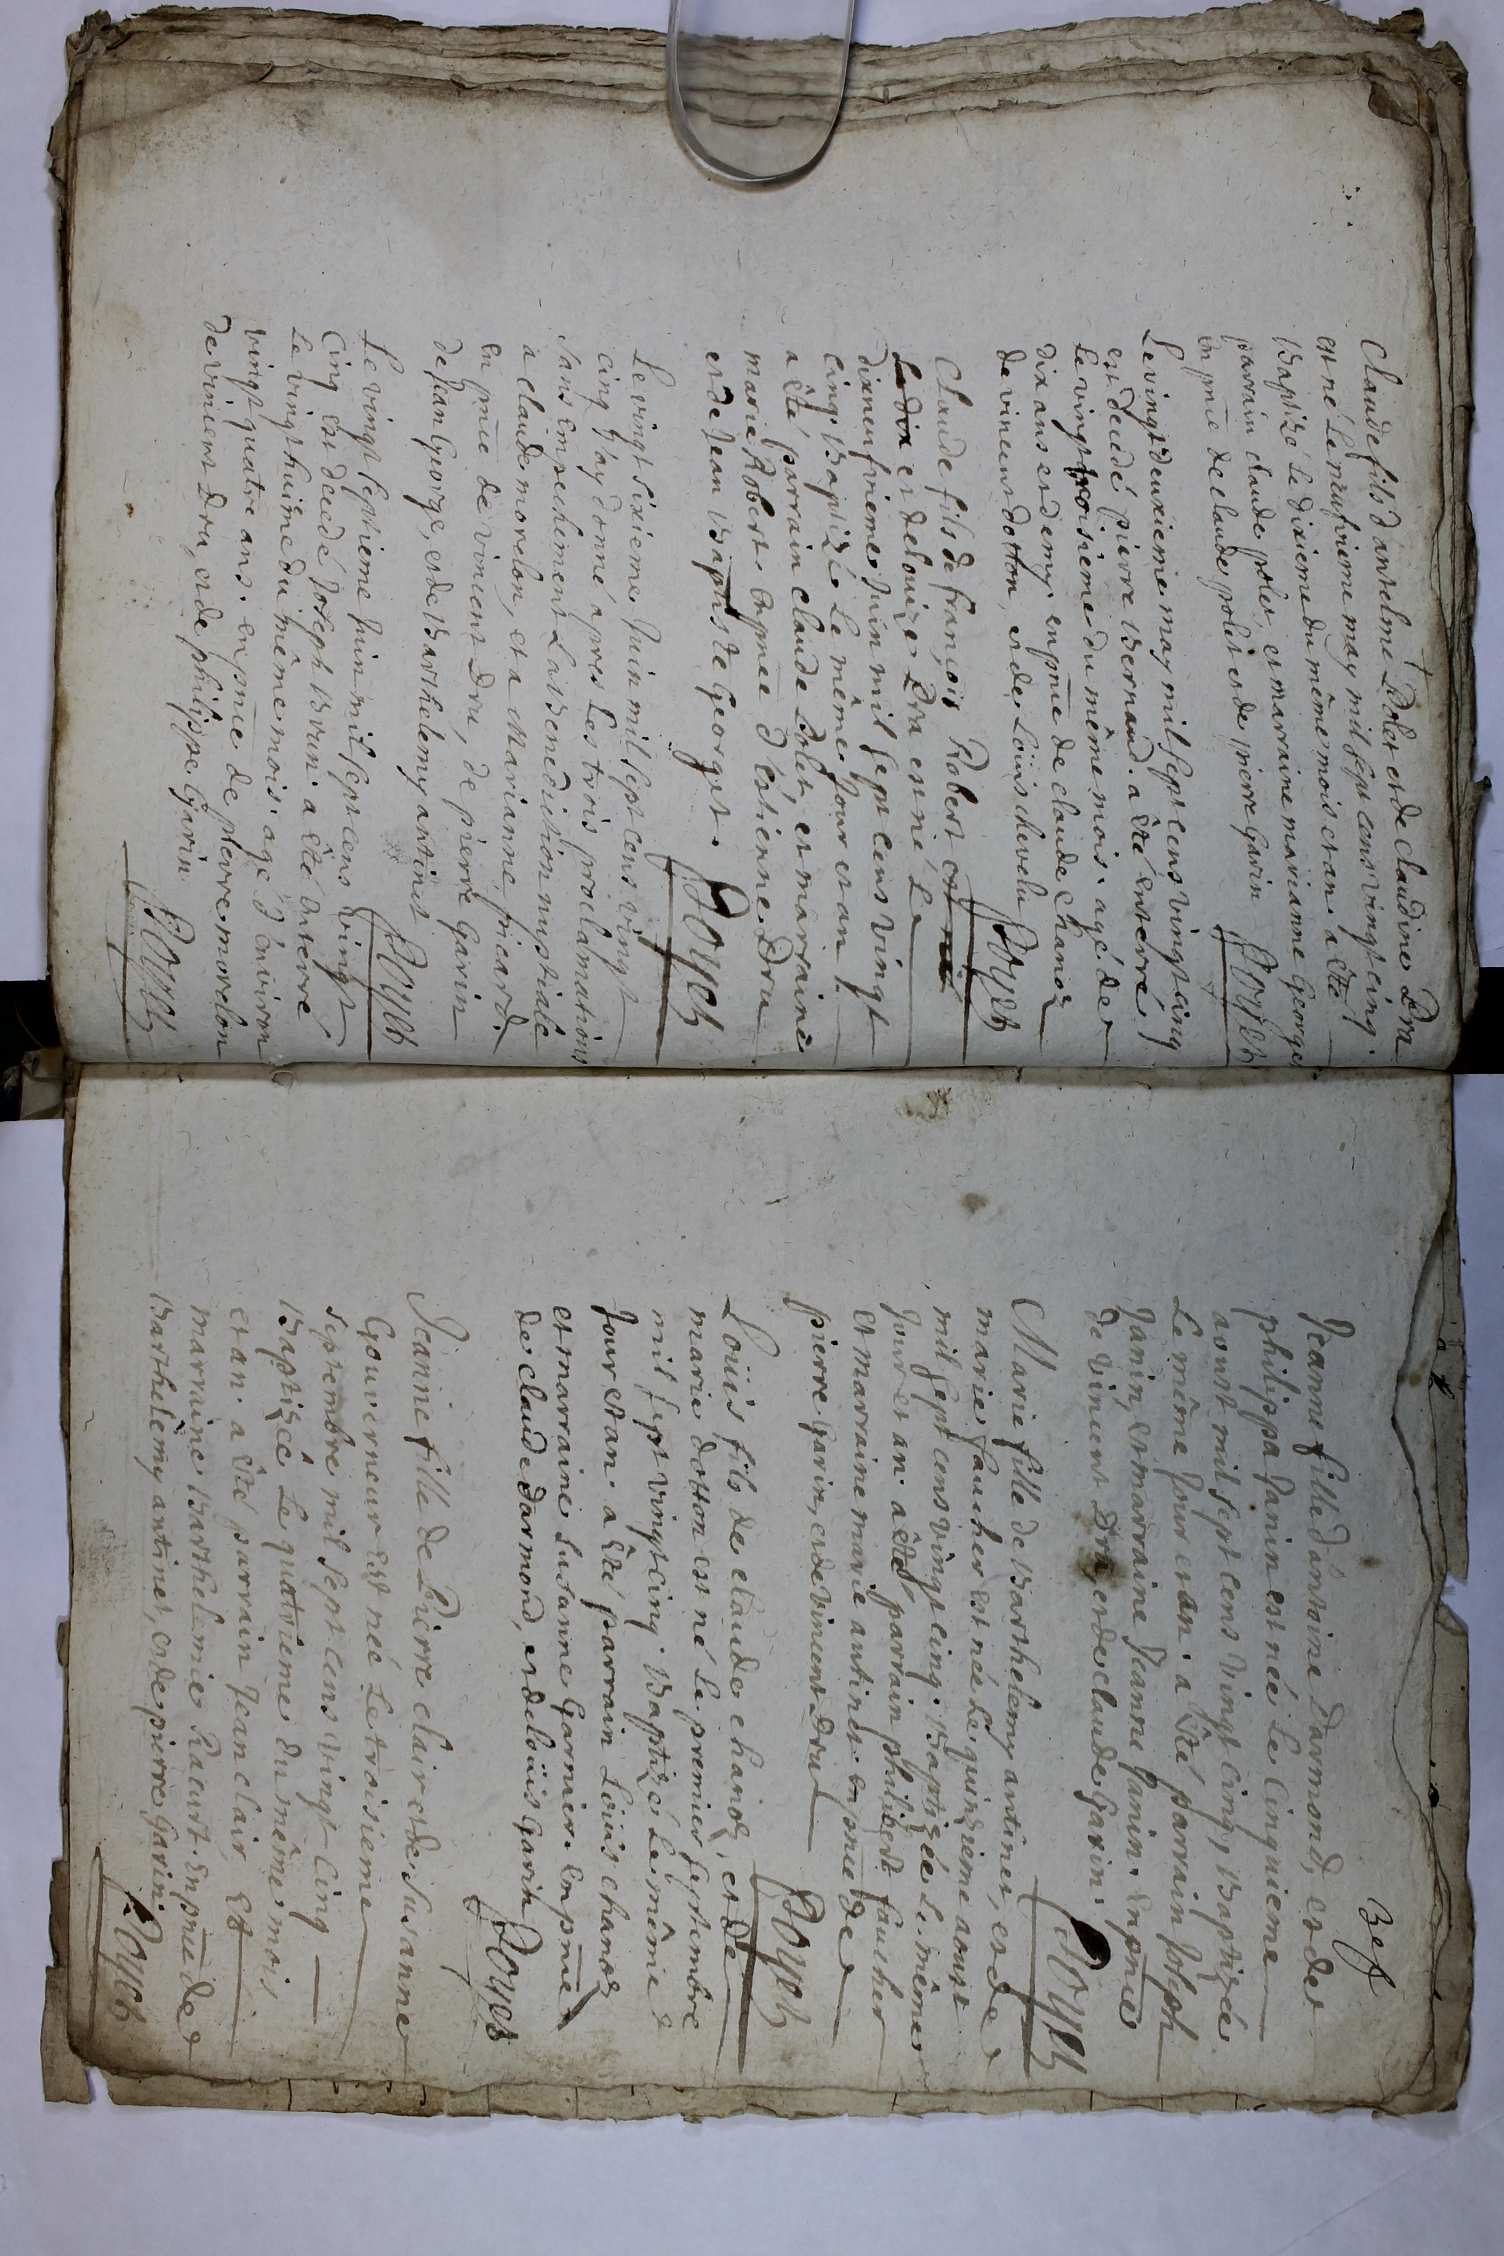 Claude fils d'antelme Polet et de claudine Dra
est né le neufvieme may mil sept cens vingt cinq.
Baptizé le dixieme du même mois et an a êté
parrain claude polet, et marraine marianne George
en pnce de claude polet et de pierre Garin
Poyet
Le vingt deuxieme may mil sept cens vingt cinq
est decedé pierre Bernard. a êté enterré
le vingt troisieme du même mois. agé de
dix ans et demy. en pnce de claude chanoz
de vincent dotton, et de Loüis chevelu
Poyet
Claude fils de françois Robert est né
Le dix et de Louize Dra est né Le
dixneufvieme Juin mil sept cens vingt
cinq. Baptizé Le même Jour et an.
a êté parrain claude Polet et marraine
marie Robert. en pnce d'estienne Dru
et de Jean Baptiste Georget.
Poyet
Le vingt sixieme Juin mil sept cens vingt
cinq J'ay donné apres Les trois proclamations
sans empechement La Benediction nuptiale
a claude morelon, et a Marianne picard.
en pnce de vincent Dru, de pierre Garin
de Jean George, et de Barthelemy antinet
Poyet
Le vingt septieme Juin mil sept cens vingt
Cinq est decedé Joseph Brun. a êté enterré
Le vingt huitme du même mois. agé d'environ
vingt quatre ans. en pnce de pierre morelon
de vincent Dru, et de philippe Garin
Poyet
3e f
Jeanne fille d'antoine Darmond, et de
philippa Janin est néé Le Cinquieme
aoust mil sept cens vingt cinq, Baptizéé
Le même Jour et an. a êté parrain Joseph
Janin, et marraine Jeanne Janin. en pnce
de vincent Dru, et de claude Garin.
Poyet
Marie fille de Barthelemy antinet, et de
marie faucher est néé Le quinzieme aoust
mil sept cens vingt cinq. Baptizéé Le même
Jour et an. a êté parrain philibert faucher
et marraine marie antinet. en pnce de
pierre Garin, et de vincent Dru
Poyet
Loüis fils de claude chanoz, et de
marie dotton est né Le premier septembre
mil sept vingt cinq. Baptizé Le même
Jour et an. a êté parrain Loüis chanoz
et marraine Susanne Garnier. en pnce
de claude Darmond, et de loüis Garin
Poyet
Jeanne fille de Pierre clair et de Susanne
Gouverneur est néé Le troisieme
septembre mil sept cens vingt Cinq
Baptizéé Le quatrieme du même mois
et an. a êté parrain Jean clair, et
marraine Barthelemie Racurt. En pnce de
Barthelemy antinet, et de pierre Garin
Poyet